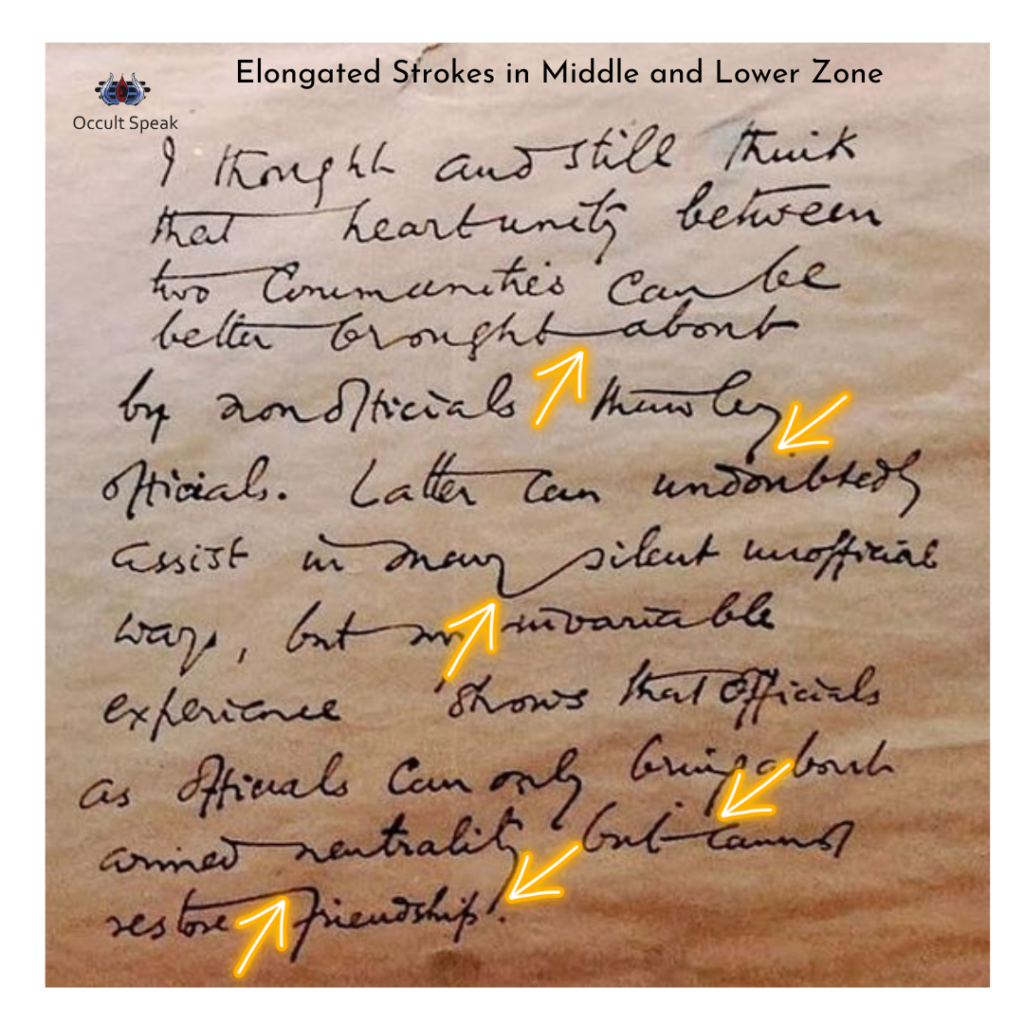 Elongated Strokes in Middle and Lower Zone
Occult Speak
I thought and still think
that heart unity between
two Communities can be
better brought about
by non officials than by
officials. Latter can undoubtedly
assist in many silent unofficial
ways, but my invariable
experience shows that officials
as officials can only bring about
armed neutrality but cannot
restore friendship.